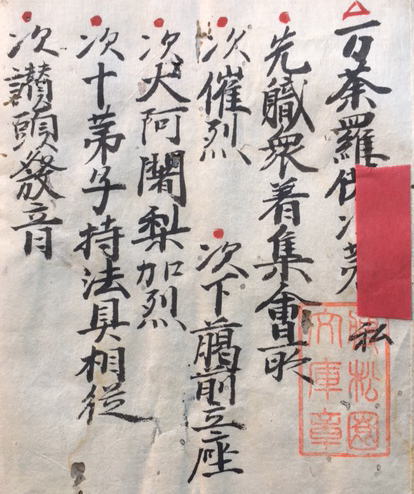 万荼羅供次第 私
先軄衆着集會所
次催烈 次下臈前立座
次大阿闍梨加烈
次十弟子持法具相從
次讃頭發音
松園
文庫章